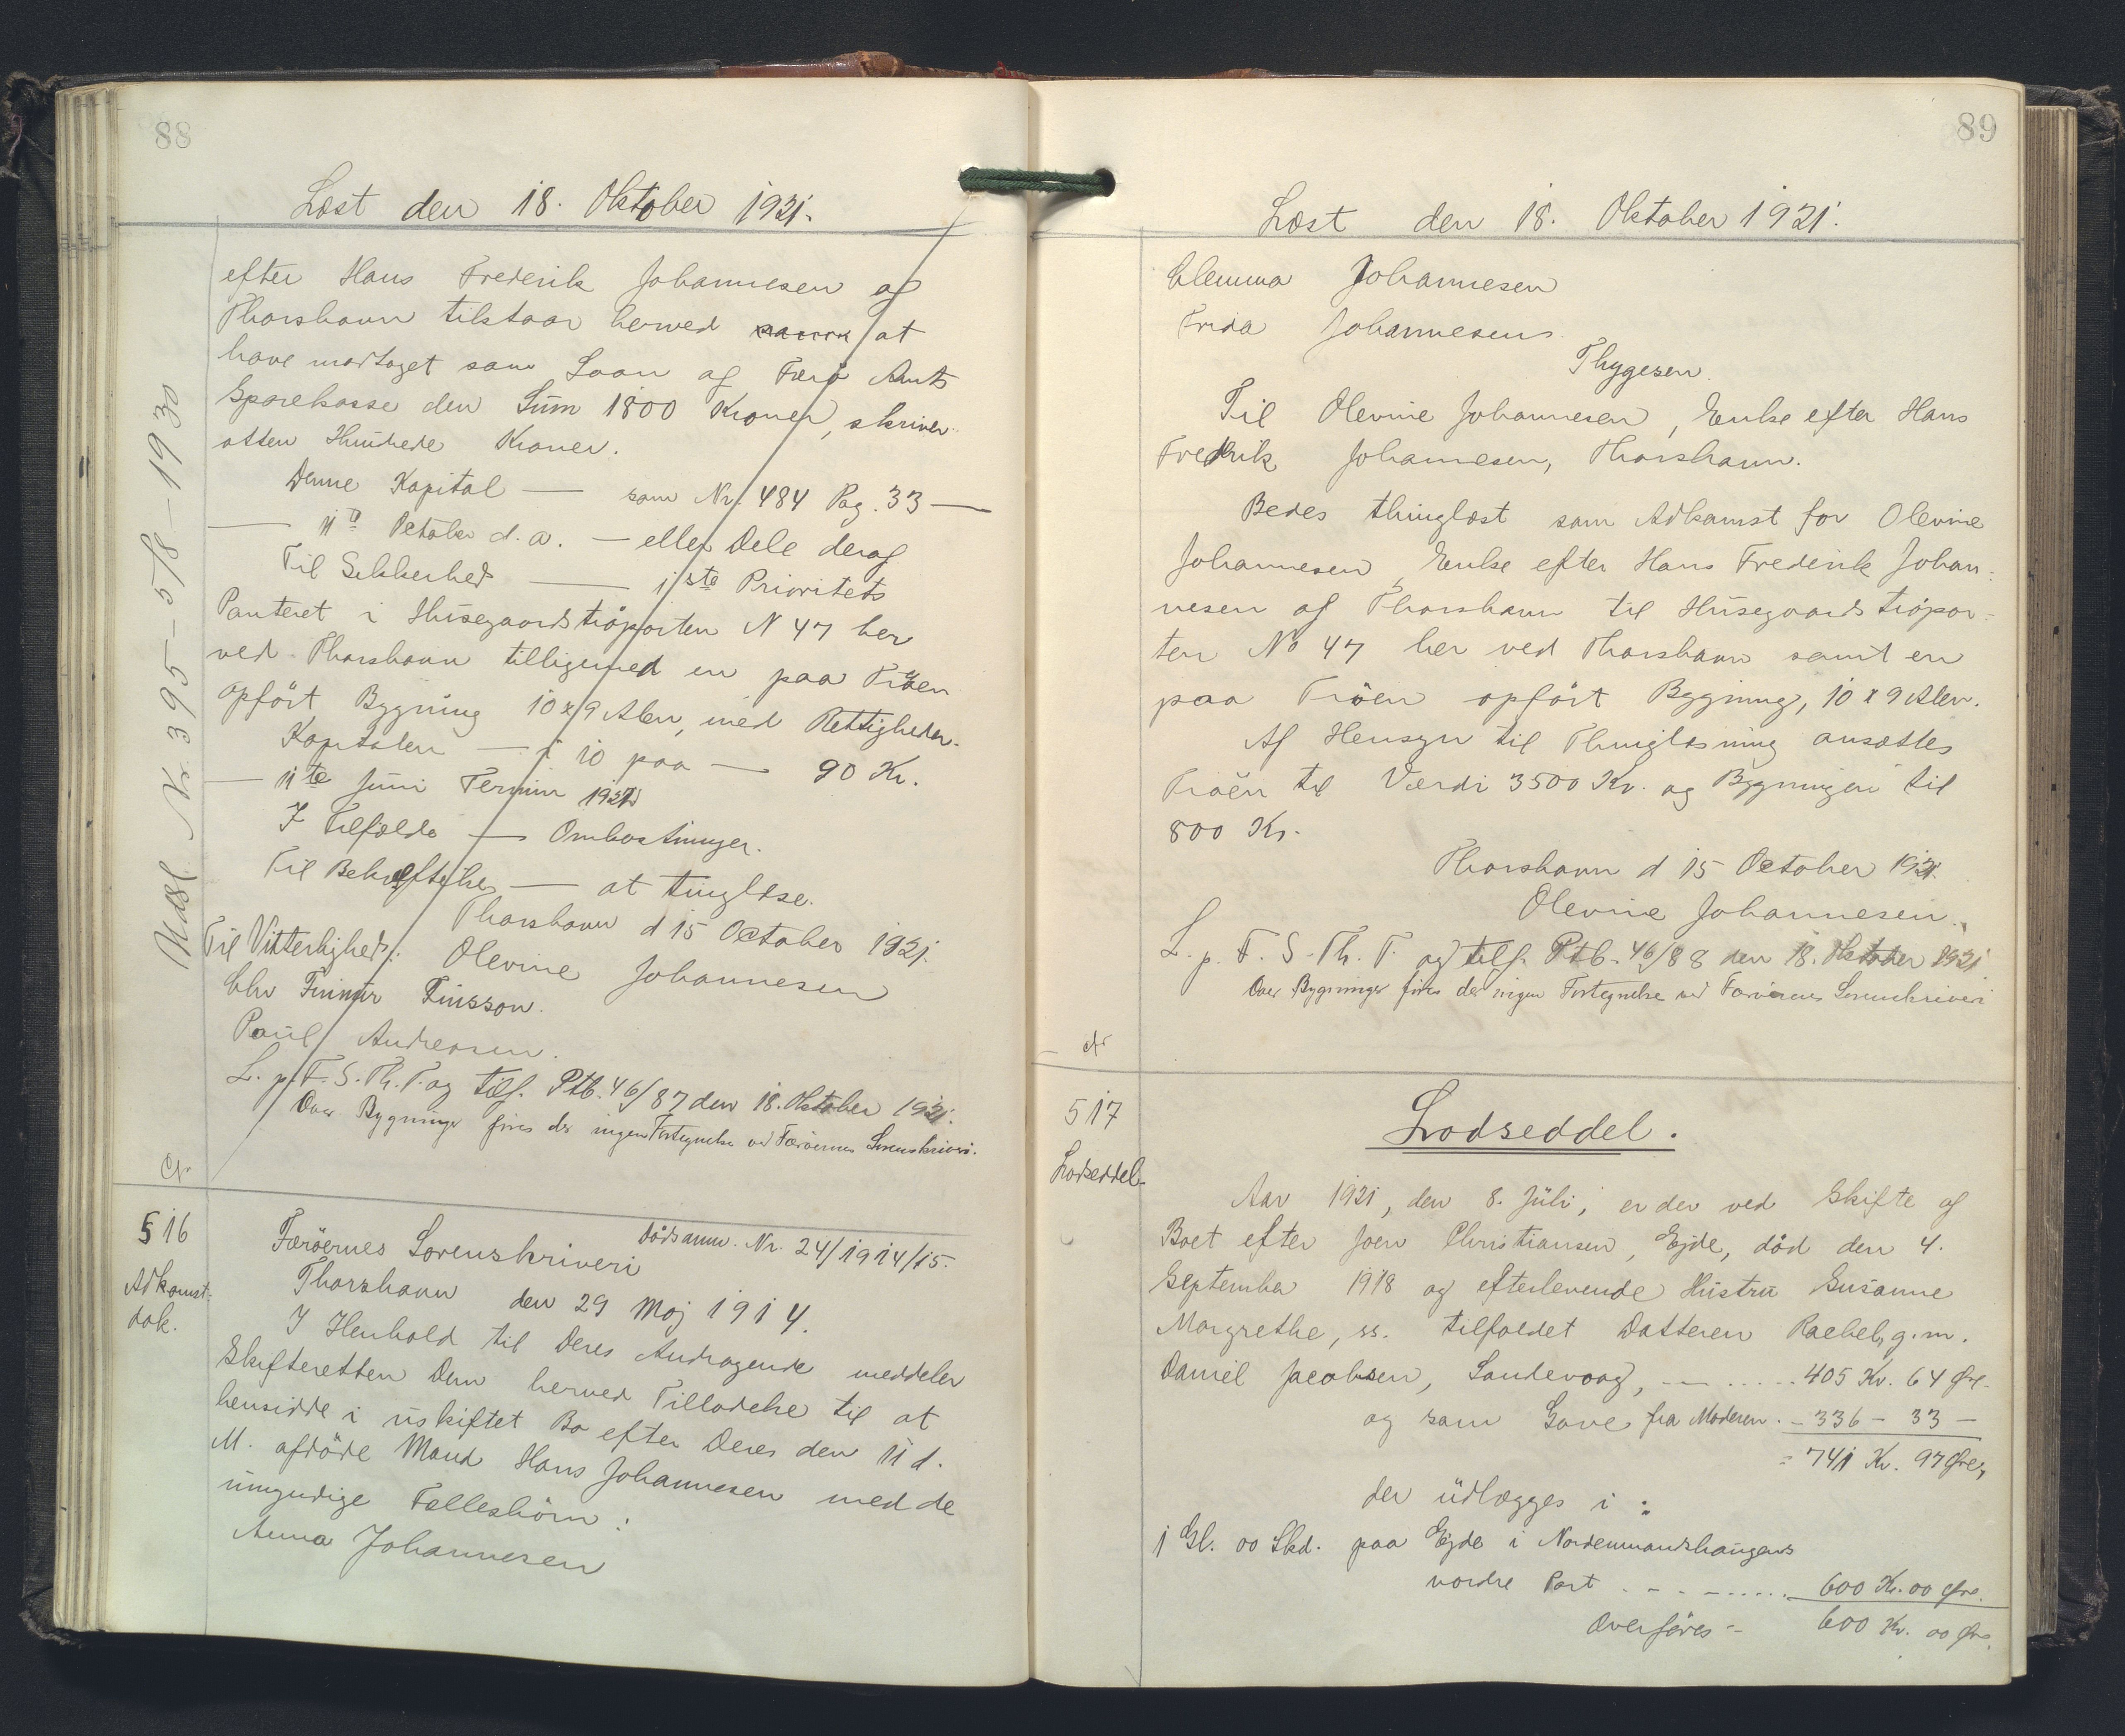 88
Læst den 18. Oktober 1921.
efter Hans Frederik Johannesen af
Thorshavn tilstaar herved at
have modtaget som Laan af Færø Amts
Sparekasse den Sum 1800 Kroner, skriver
atten Hundrede Kroner.
Denne Kapital — som Nr. 484 Pag. 33 —
— 11te October d. a. — eller Dele deraf
Til Sikkerhed — 1ste Prioritets
Panteret i Húsegaardstrøparten N 47 her
ved Thorshavn tilligemed en paa Trøen
opført Bygning 10 x 9 Alen, med Rettigheder.
Kapitalen — à 10 paa — 90 Kr.
— 11te Juni Termin 1922
I Tilfælde — Omkostninger.
Til Bekræftelse — at tinglæse.
Thorshavn d 15 October 1921.
Til Vitterlighed: Olevine Johannesen
Chr Finnur Finsson.
Paul Andreasen.
L. p. F. S. Th. T. og tilf. Ptb. 46/87 den 18. Oktober 1921.
Over Bygninger føres der ingen Fortegnelse ved Færøernes Sorenskriveri.
Cfr
Udsl. Nr. 395 - 5/8 - 1930
516
Adkomst-
dok.
Dødsanm. Nr. 24/1914/15.
Færøernes Sorenskriveri
Thorshavn den 29 Maj 1914.
I Henhold til Deres Andragende meddeler
Skifteretten Dem herved Tilladelse til at
hensidde i uskiftet Bo efter Deres den 11 d.
M. afdøde Mand Hans Johannesen med de
umyndige Fællesbörn:
Anna Johannesen
89
Læst den 18. Oktober 1921.
Clemma Johannesen
Frida Johannesen
Thygesen.
Til Olevine Johannesen, Enke efter Hans
Fredrik Johannesen, Thorshavn.
Bedes thinglæst som Adkomst for Olevine
Johannesen, Enke efter Hans Frederik Johan-
nesen af Thorshavn til Húsegaardstrøpar-
ten No 47 her ved Thorshavn samt en
paa Trøen opført Bygning, 10 x 9 Alen.
Af Hensyn til Thinglæsning ansættes
Trøen til Værdi 3500 Kr. og Bygningen til
800 Kr.
Thorshavn d 15 October 1921.
Olevine Johannesen.
L. p. F. S. Th. T. og tilf. Ptb. 46/88 den 18. Oktober 1921
Over Bygninger føres der ingen Fortegnelse ved Færøernes Sorenskriveri
Cfr
517
Lodseddel.
Lodseddel.
Aar 1921, den 8. Júli, er der ved Skifte af
Boet efter Joen Christiansen, Ejde, död den 4.
September 1918 og efterlevende Hústru Susanne
Margrethe, ss. tilfaldet Datteren Rachel, g. m.
Daniel Jacobsen, Sandevaag, — ..... 405 Kr. 64 Øre.
og som Gave fra Moderen. - 336 - 33 -
= 741 Kr. 97 Øre,
der údlægges i :
1 Gl. 00 Skd. paa Ejde i Nordenmandshaugens
nordre Part . - - - ..... 600 Kr. 00 Øre.
Overføres - 600 Kr. 00 Øre.